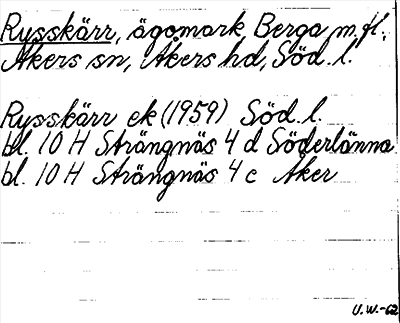 Rysskärr, ägomark, Berga m.fl.,
Åkers sn, Åkers hd, Söd. l.
Rysskärr ek (1959) Söd. l.
bl. 10 H Strängnäs 4 d Söderlänna
bl. 10 H Strängnäs 4 c Åker
U.W.-62